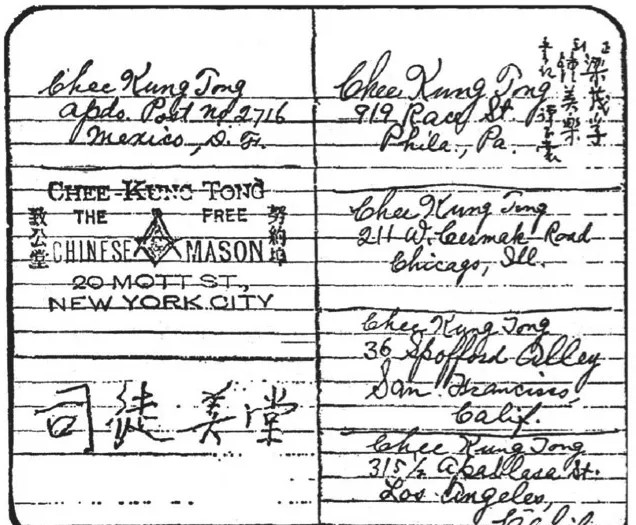 Chee Kung Tong
apdo. Post no 2716
Mexico, D. F.
CHEE KUNG TONG
THE FREE
CHINESE MASON
致公堂
約埠
20 MOTT ST,
NEW YORK CITY
司徒美堂
Chee Kung Tong
919 Race St.
Phila., Pa.
Chee Kung Tong
211 W. Cermak Road
Chicago, Ill.
Chee Kung Tong
36 Spofford Alley
San Francisco,
Calif.
Chee Kung Tong
315½ Apablasa St.
Los Angeles,
Calif